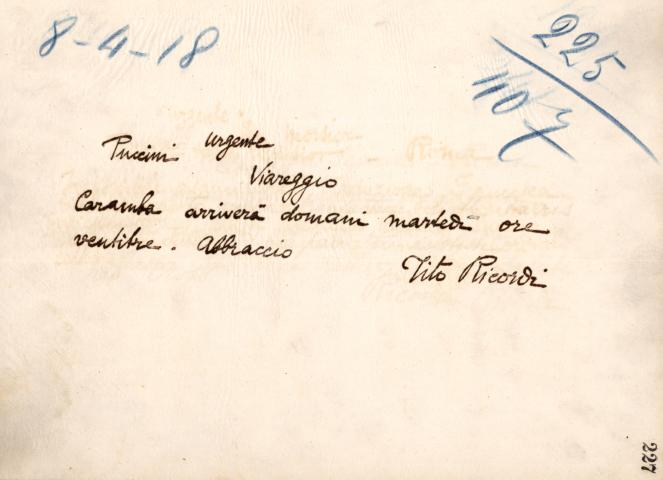 8-4-18
225
107
urgente
Puccini
Viareggio
Caramba arriverà domani martedì ore
ventitre. Abbraccio
Tito Ricordi
227